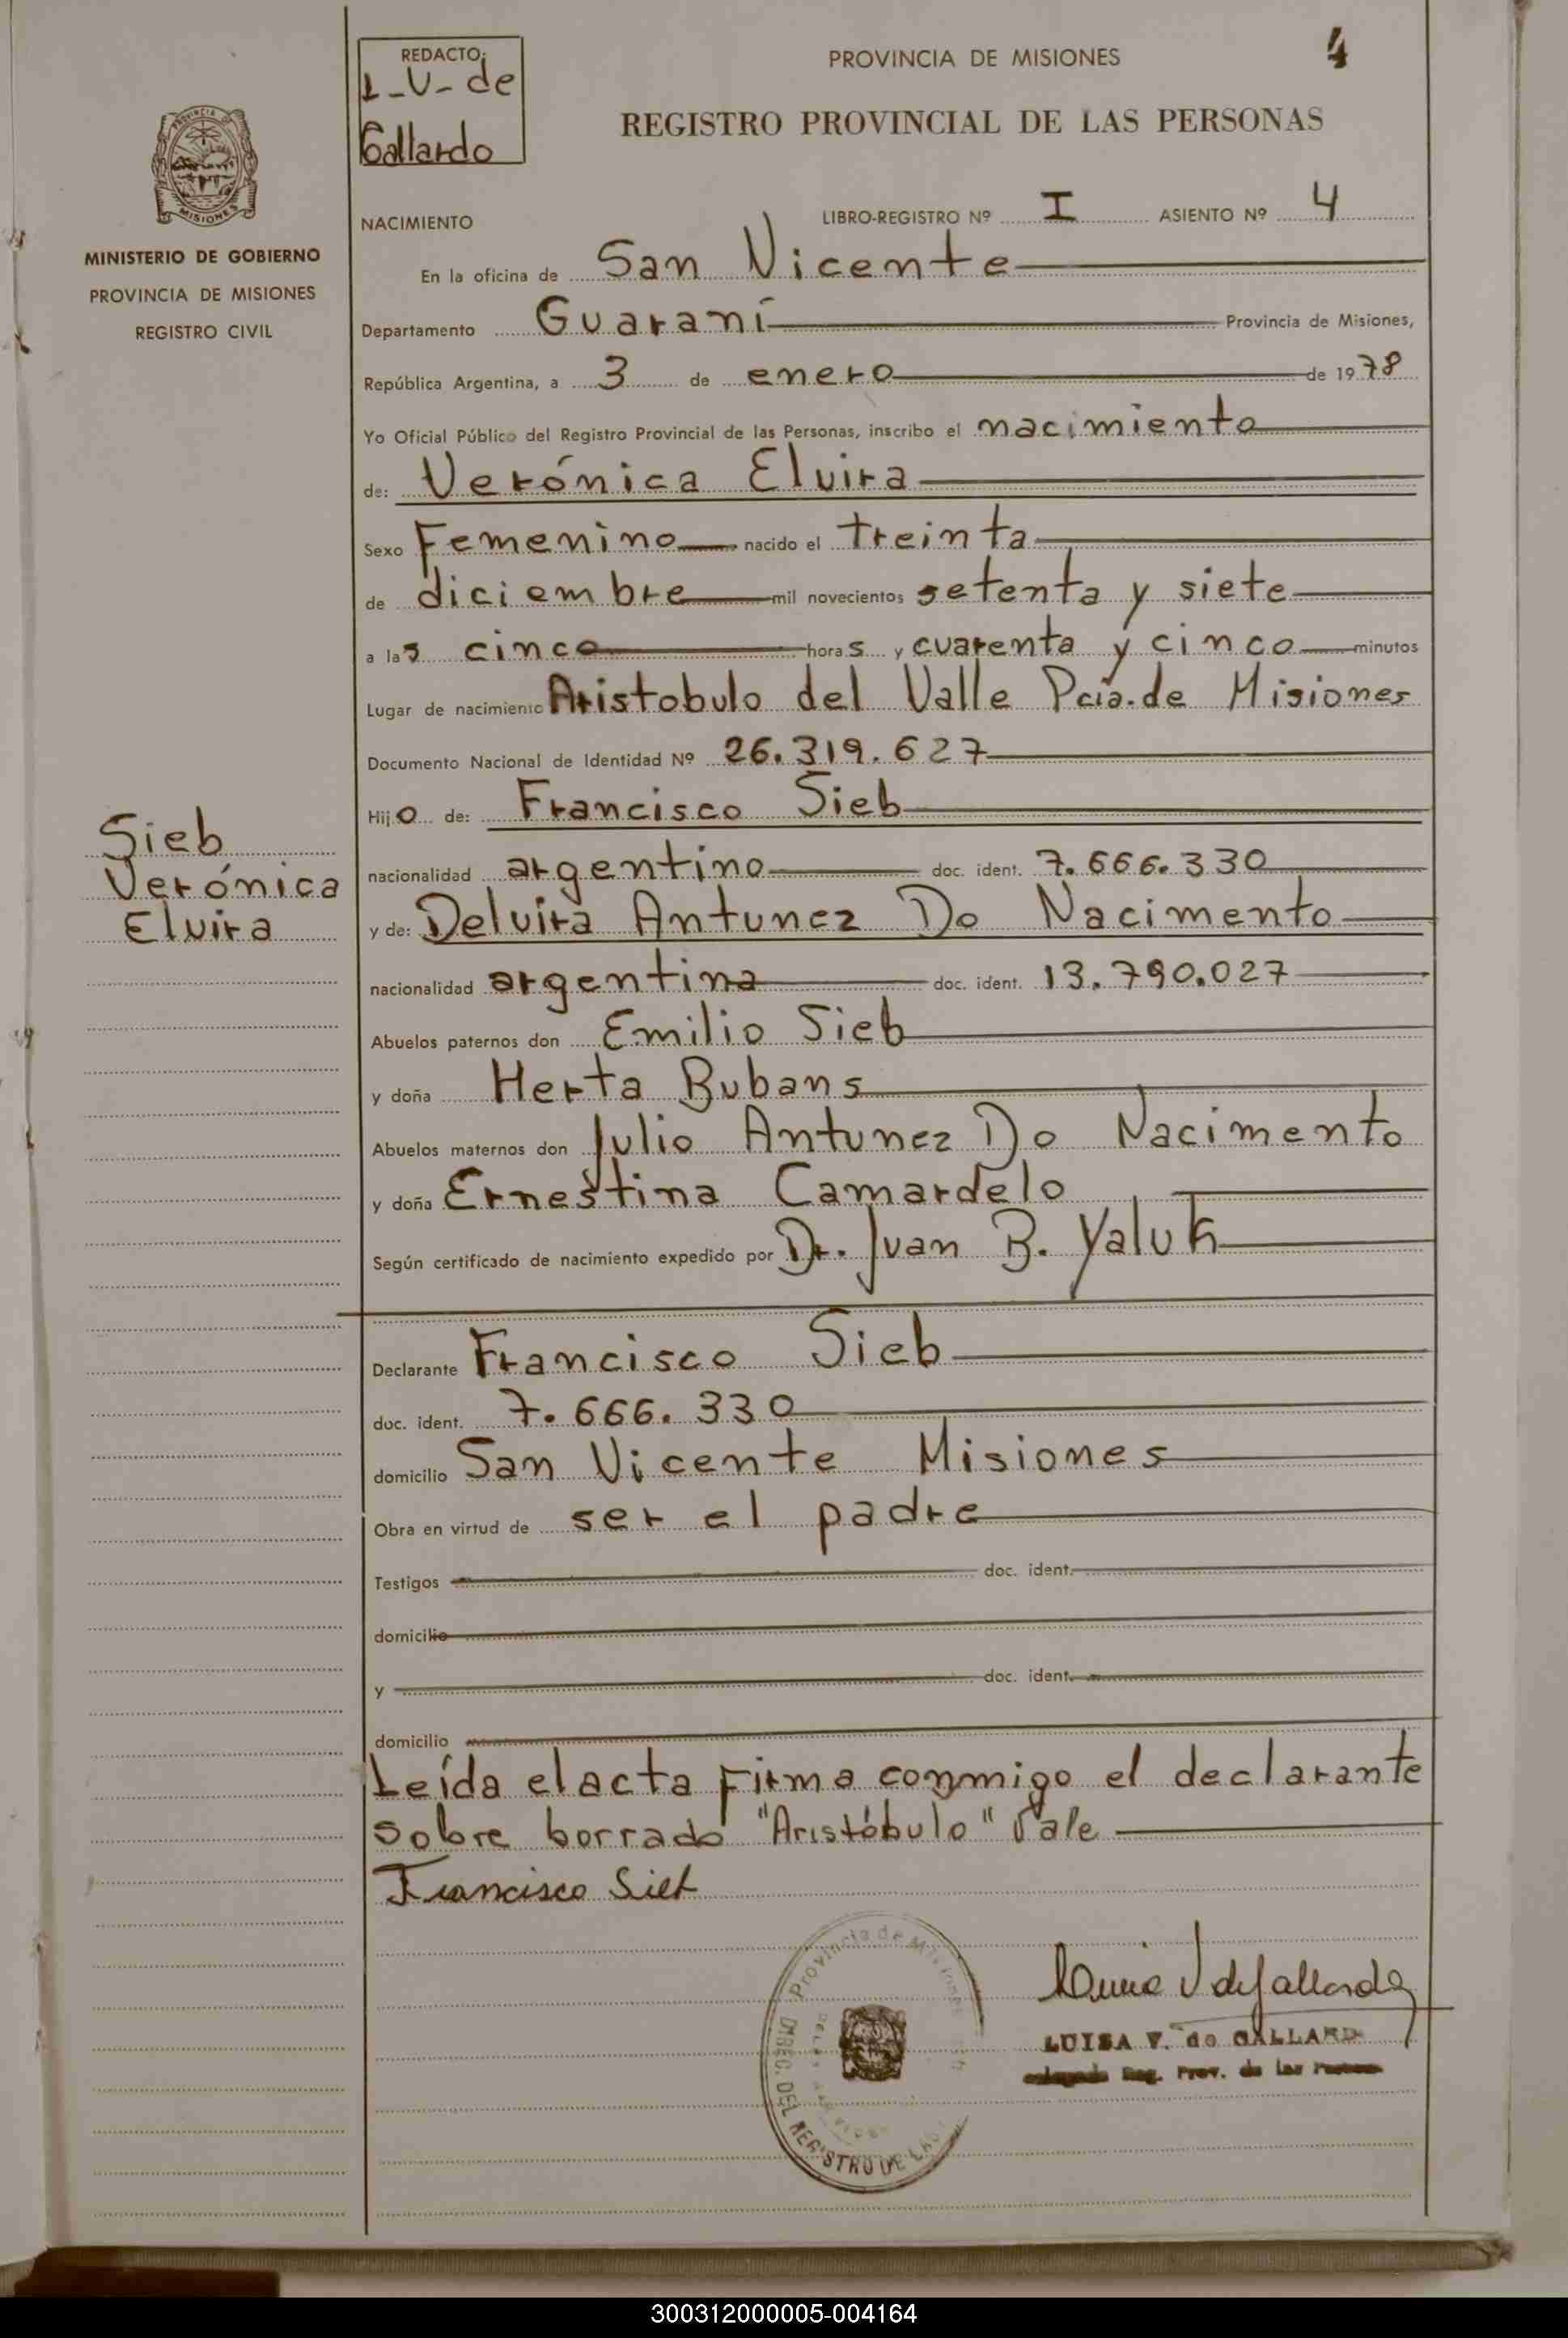 4
REDACTO:
L-V-de
Gallardo
PROVINCIA DE MISIONES
REGISTRO PROVINCIAL DE LAS PERSONAS
PROVINCIA
MISIONES
MINISTERIO DE GOBIERNO
PROVINCIA DE MISIONES
REGISTRO CIVIL
NACIMIENTO LIBRO-REGISTRO Nº I ASIENTO Nº 4
En la oficina de San Vicente
Departamento Guaraní Provincia de Misiones,
República Argentina, a 3 de enero de 1978
Yo Oficial Público del Registro Provincial de las Personas, inscribo el nacimiento
de: Verónica Elvira
Sexo Femenino nacido el treinta
de diciembre mil novecientos setenta y siete
a las cinco horas y cuarenta y cinco minutos
Lugar de nacimiento Aristobulo del Valle Pcia. de Misiones
Documento Nacional de Identidad Nº 26.319.627
Hijo de: Francisco Sieb
nacionalidad argentino doc. ident. 7.666.330
y de: Delvira Antunez Do Nacimento
nacionalidad argentina doc. ident. 13.790.027
Abuelos paternos don Emilio Sieb
y doña Herta Bubans
Abuelos maternos don Julio Antunez Do Nacimento
y doña Ernestina Camardelo
Según certificado de nacimiento expedido por Dr. Juan B. Yaluk
Sieb
Verónica
Elvira
Declarante Francisco Sieb
doc. ident. 7.666.330
domicilio San Vicente Misiones
Obra en virtud de ser el padre
Testigos doc. ident.
domicilio
y doc. ident.
domicilio
Leída el acta firma conmigo el declarante
sobre borrado "Aristóbulo" Vale
Francisco Sieb
Provincia de Misiones
DIREC. DEL REGISTRO DE LAS
LUISA V. de GALLARDO
Reg. Prov. de las
300312000005-004164